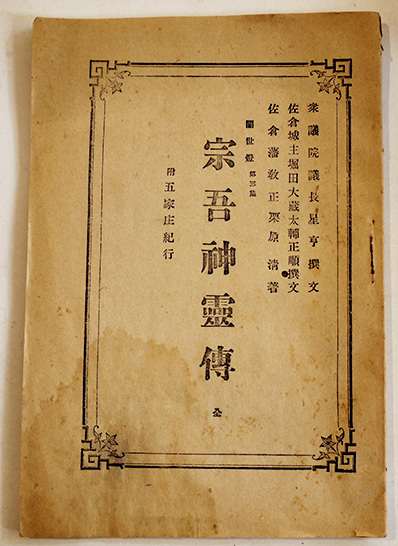 衆議院議長星亨撰文
佐倉城主堀田大蔵太輔正順撰文
佐倉藩教正栗原清著
闇世燈 第三編
宗吾神靈傳 全
附五家庄紀行